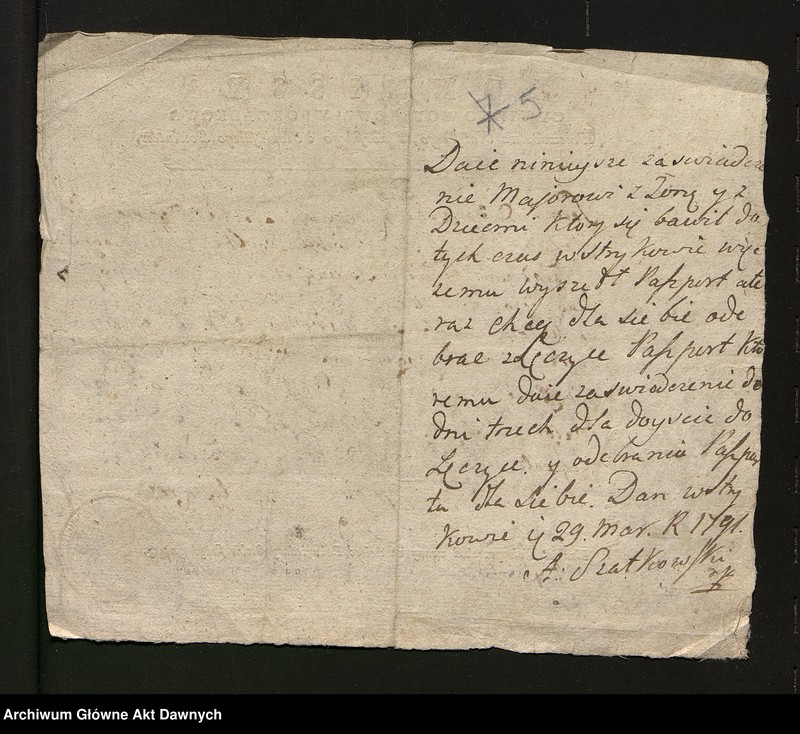 5
Daie ninieysze zaswiadcze
nie Majorowi z Żoną y z
Dziecmi Ktory się bawił do
tych czas w Strykowie więc
zemu wyszedł Paszport a te
raz chcą dla siebie ode
brac z Łęczyce Paszport Kto
remu daie zaswiadczenie do
dni trzech dla doyscie do
Łęczyce y odebrania Paszpor
tu dla siebie. Dan w Stry
Kowie 29. Mar. R 1791.
A: Szatkowski
Archiwum Główne Akt Dawnych